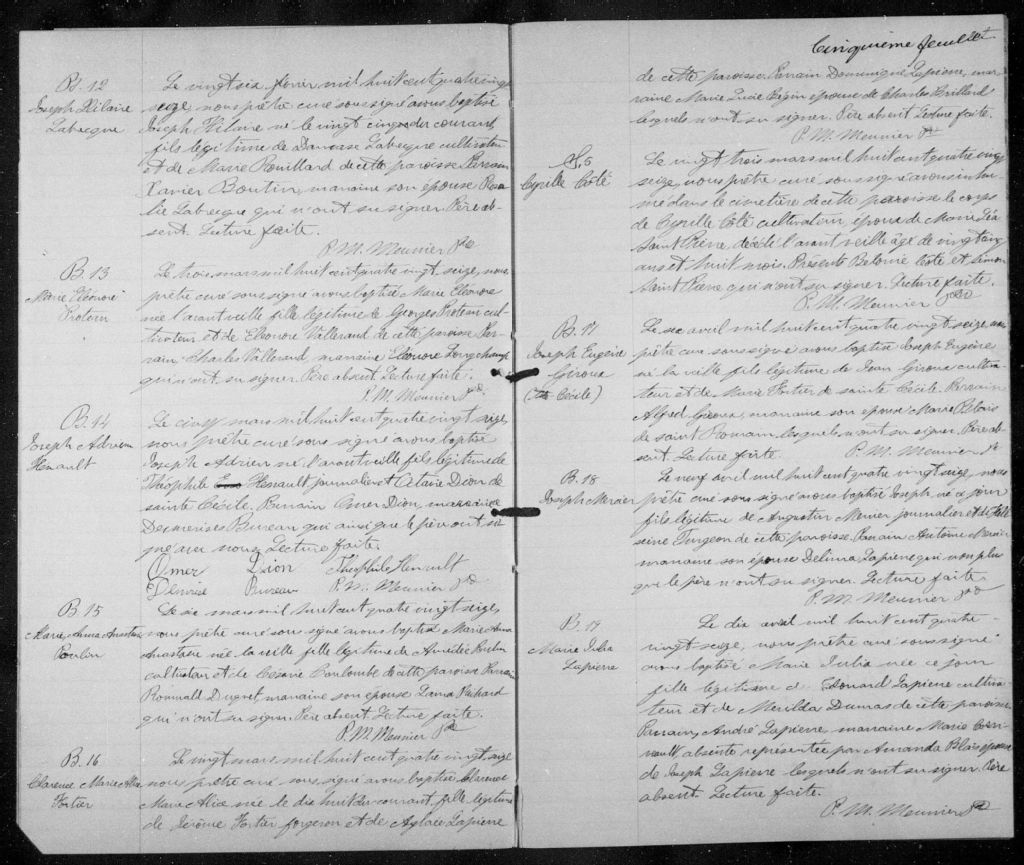 B. 12
Joseph Hilaire
Labrecque
Le vingt six février mil huit cent quatre vingt
seize, nous prêtre curé soussigné avons baptisé
Joseph Hilaire né le vingt cinq du courant,
fils légitime de Damase Labrecque cultivateur
et de Marie Rouillard de cette paroisse. Parrain
Xavier Boutin, marraine son épouse Rosa-
lie Labrecque qui n'ont su signer. Père ab-
sent. Lecture faite.
P. M. Meunier Ptre
B. 13
Marie Eléonore
Proteau
Le trois mars mil huit cent quatre vingt seize, nous
prêtre curé soussigné avons baptisé Marie Eléonore
née l'avant veille fille légitime de Georges Proteau cul-
tivateur et de Eléonore Vallerand de cette paroisse. Par-
rain, Charles Vallerand, marraine Eléonore Longchamp
qui n'ont su signer. Père absent. Lecture faite.
P. M. Meunier Ptre
B. 14
Joseph Adrien
Henault
Le cinq mars mil huit cent quatre vingt seize,
nous prêtre curé soussigné avons baptisé
Joseph Adrien né l'avant veille fils légitime de
Théophile Henault journalier et Alaire Dion de
sainte Cécile. Parrain Omer Dion, marraine
Bureau qui ainsi que le père ont si-
gné avec nous. Lecture faite.
Omer Dion Théophile Henault
Bureau P. M. Meunier Ptre
B. 15
Marie Anna Anastasie
Poulin
Le six mars mil huit cent quatre vingt seize,
nous prêtre curé soussigné avons baptisé Marie Anna
Anastasie née la veille fille légitime de Amédée Poulin
cultivateur et de Césarie Coulombe de cette paroisse. Parrain
Romuald Duquet, marraine son épouse
qui n'ont su signer. Père absent. Lecture faite.
P. M. Meunier Ptre
B. 16
Clarence Marie Alia
Fortier
Le vingt mars mil huit cent quatre vingt seize
nous prêtre curé soussigné avons baptisé Clarence
Marie Alia née le dix huit du courant, fille légitime
de Jérôme Fortier forgeron et de Aglaée Lapierre
Cinquième feuillet
de cette paroisse. Parrain Dominique Lapierre, mar-
raine Marie Lucie Bégin épouse de Charles
lesquels n'ont su signer. Père absent. Lecture faite.
P. M. Meunier Ptre
S. 5
Cyrille Côté
Le vingt trois mars mil huit cent quatre vingt
seize, nous prêtre curé soussigné avons inhu-
mé dans le cimetière de cette paroisse le corps
de Cyrille Côté cultivateur, époux de Marie Léa
Saint Pierre, décédé l'avant veille âgé de vingt cinq
ans et huit mois. Présents Côté et Simon
Saint Pierre qui n'ont su signer. Lecture faite.
P. M. Meunier Ptre
B. 17
Joseph Eugène
Giroux
(Ste Cécile)
Le six avril mil huit cent quatre vingt seize, nous
prêtre curé soussigné avons baptisé Joseph Eugène
né la veille fils légitime de Jean Giroux cultiva-
teur et de Marie Fortier de sainte Cécile. Parrain
Alfred Giroux, marraine son épouse Marie Blais
de saint Romain lesquels n'ont su signer. Père ab-
sent. Lecture faite. P. M. Meunier Ptre
B. 18
Joseph Mercier
Le neuf avril mil huit cent quatre vingt seize, nous
prêtre curé soussigné avons baptisé Joseph, né ce jour
fils légitime de Augustin Mercier journalier et de Vall-
seine Turgeon de cette paroisse. Parrain Antoine Mercier
marraine son épouse Delima Lapierre qui non plus
que le père n'ont su signer. Lecture faite.
P. M. Meunier Ptre
B. 19
Marie Julia
Lapierre
Le dix avril mil huit cent quatre-
vingt seize, nous prêtre curé soussigné
avons baptisé Marie Julia née ce jour
fille légitime d' Edouard Lapierre cultiva-
teur et de Merilda Dumas de cette paroisse.
Parrain, André Lapierre, marraine Marie
absente représentée par Amanda Blais épouse
de Joseph Lapierre lesquels n'ont su signer. Père
absent. Lecture faite.
P. M. Meunier Ptre